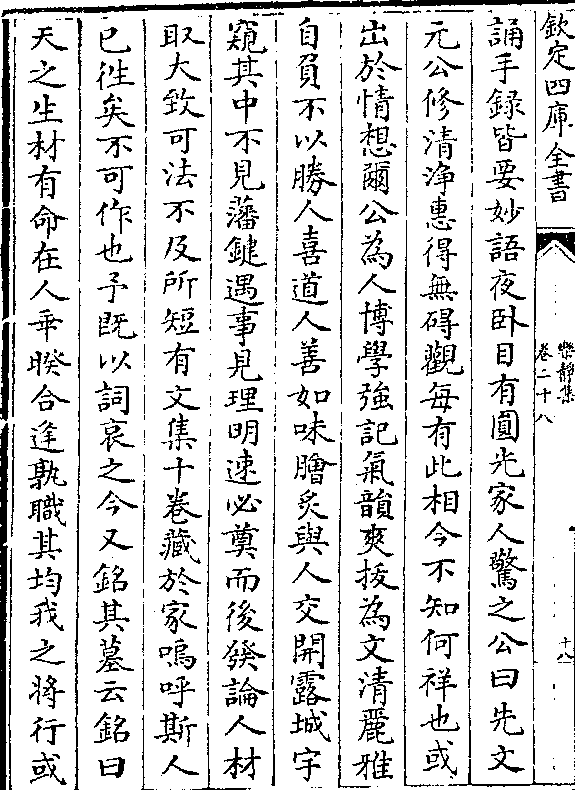 欽定四庫全書
樂靜集
卷二十八
十八
誦手録皆要妙語夜卧目有圓光家人驚之公曰先文
元公修清浄惠得無碍觀每有此相今不知何祥也或
出於情想爾公為人博學強記氣韻爽拔為文清麗雅
自負不以勝人喜道人善如味膾炙與人交開露城宇
窺其中不見藩鍵遇事見理明速必冀而後發論人材
取大致可法不及所短有文集十卷藏於家嗚呼斯人
已徃矣不可作也予既以詞哀之今又銘其墓云銘曰
天之生材有命在人乖睽合逢孰職其均我之將行或